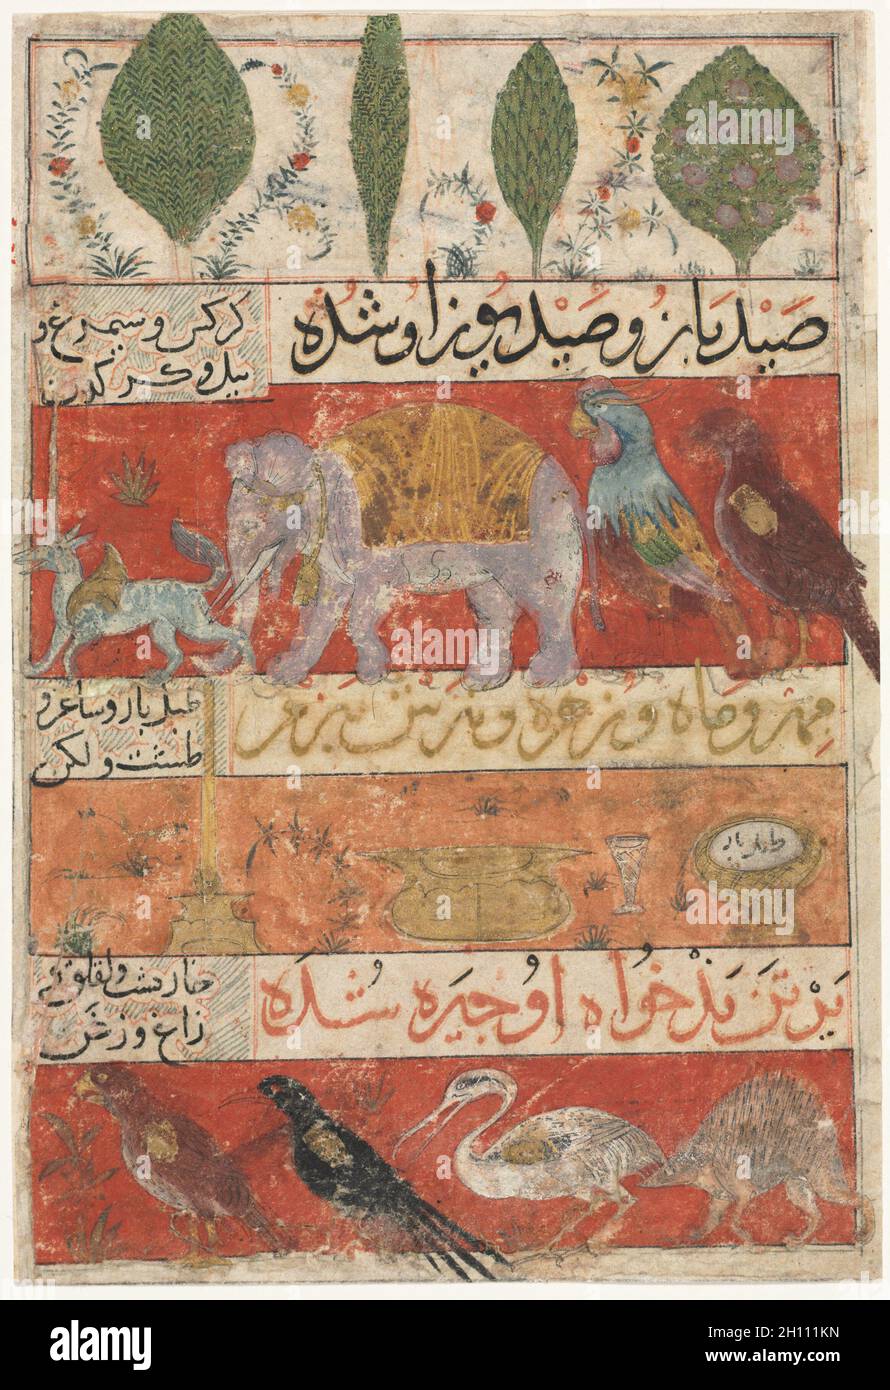 صَیْد باز و صَیْد یوز او شده
کرکس و سیمرغ و
پیل و کرکدن
مهر و ماه و زهره و تیرش ببزم
طبل باز و ساغر و
طشت و لکن
طبل باز
بر تن بدخواه او چیره شده
خارپشت و لقلق و
زاغ و زغن
alamy
Image ID: 2H111KN
www.alamy.com